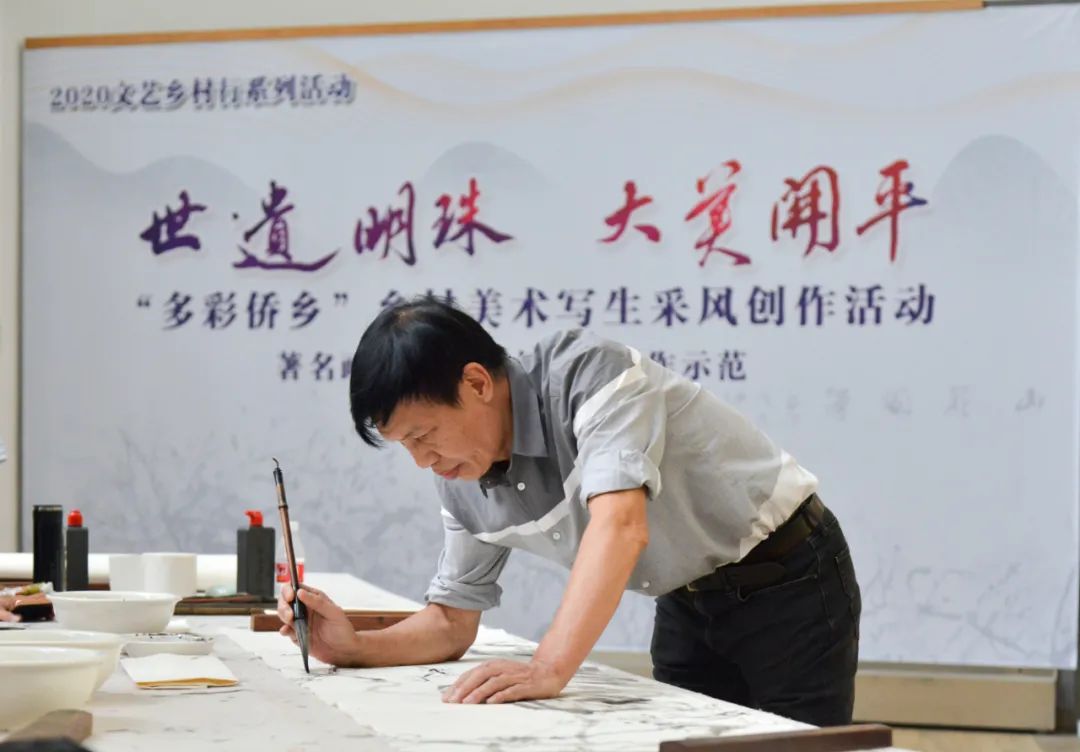 2020文艺乡村行系列活动
世遗明珠 大美開平
“多彩侨乡”乡村美术写生采风创作活动
著名 作示范